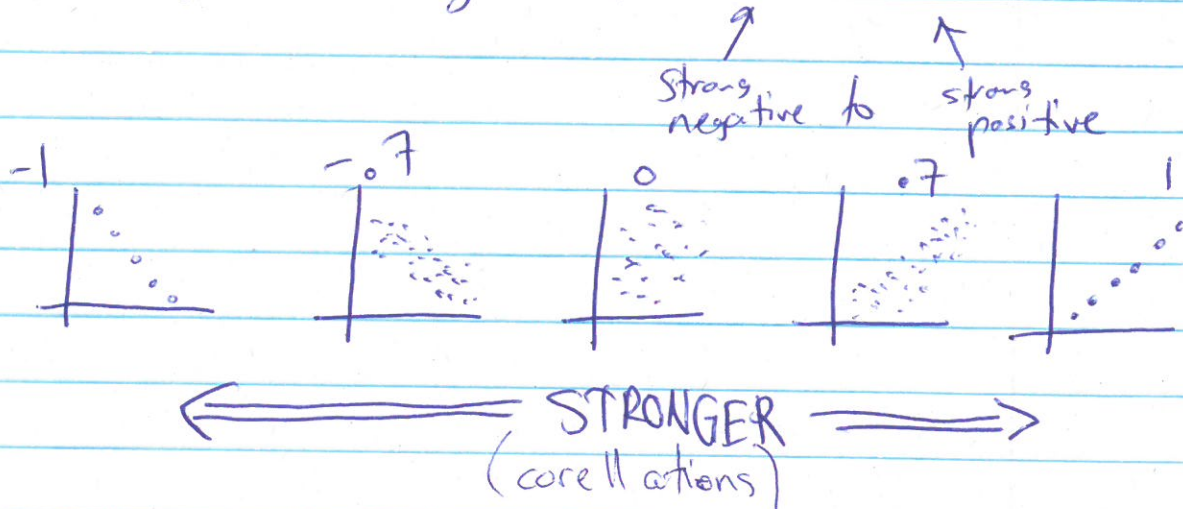 strong negative to strong positive
-1 -.7 0 .7 1
STRONGER
(corellations)